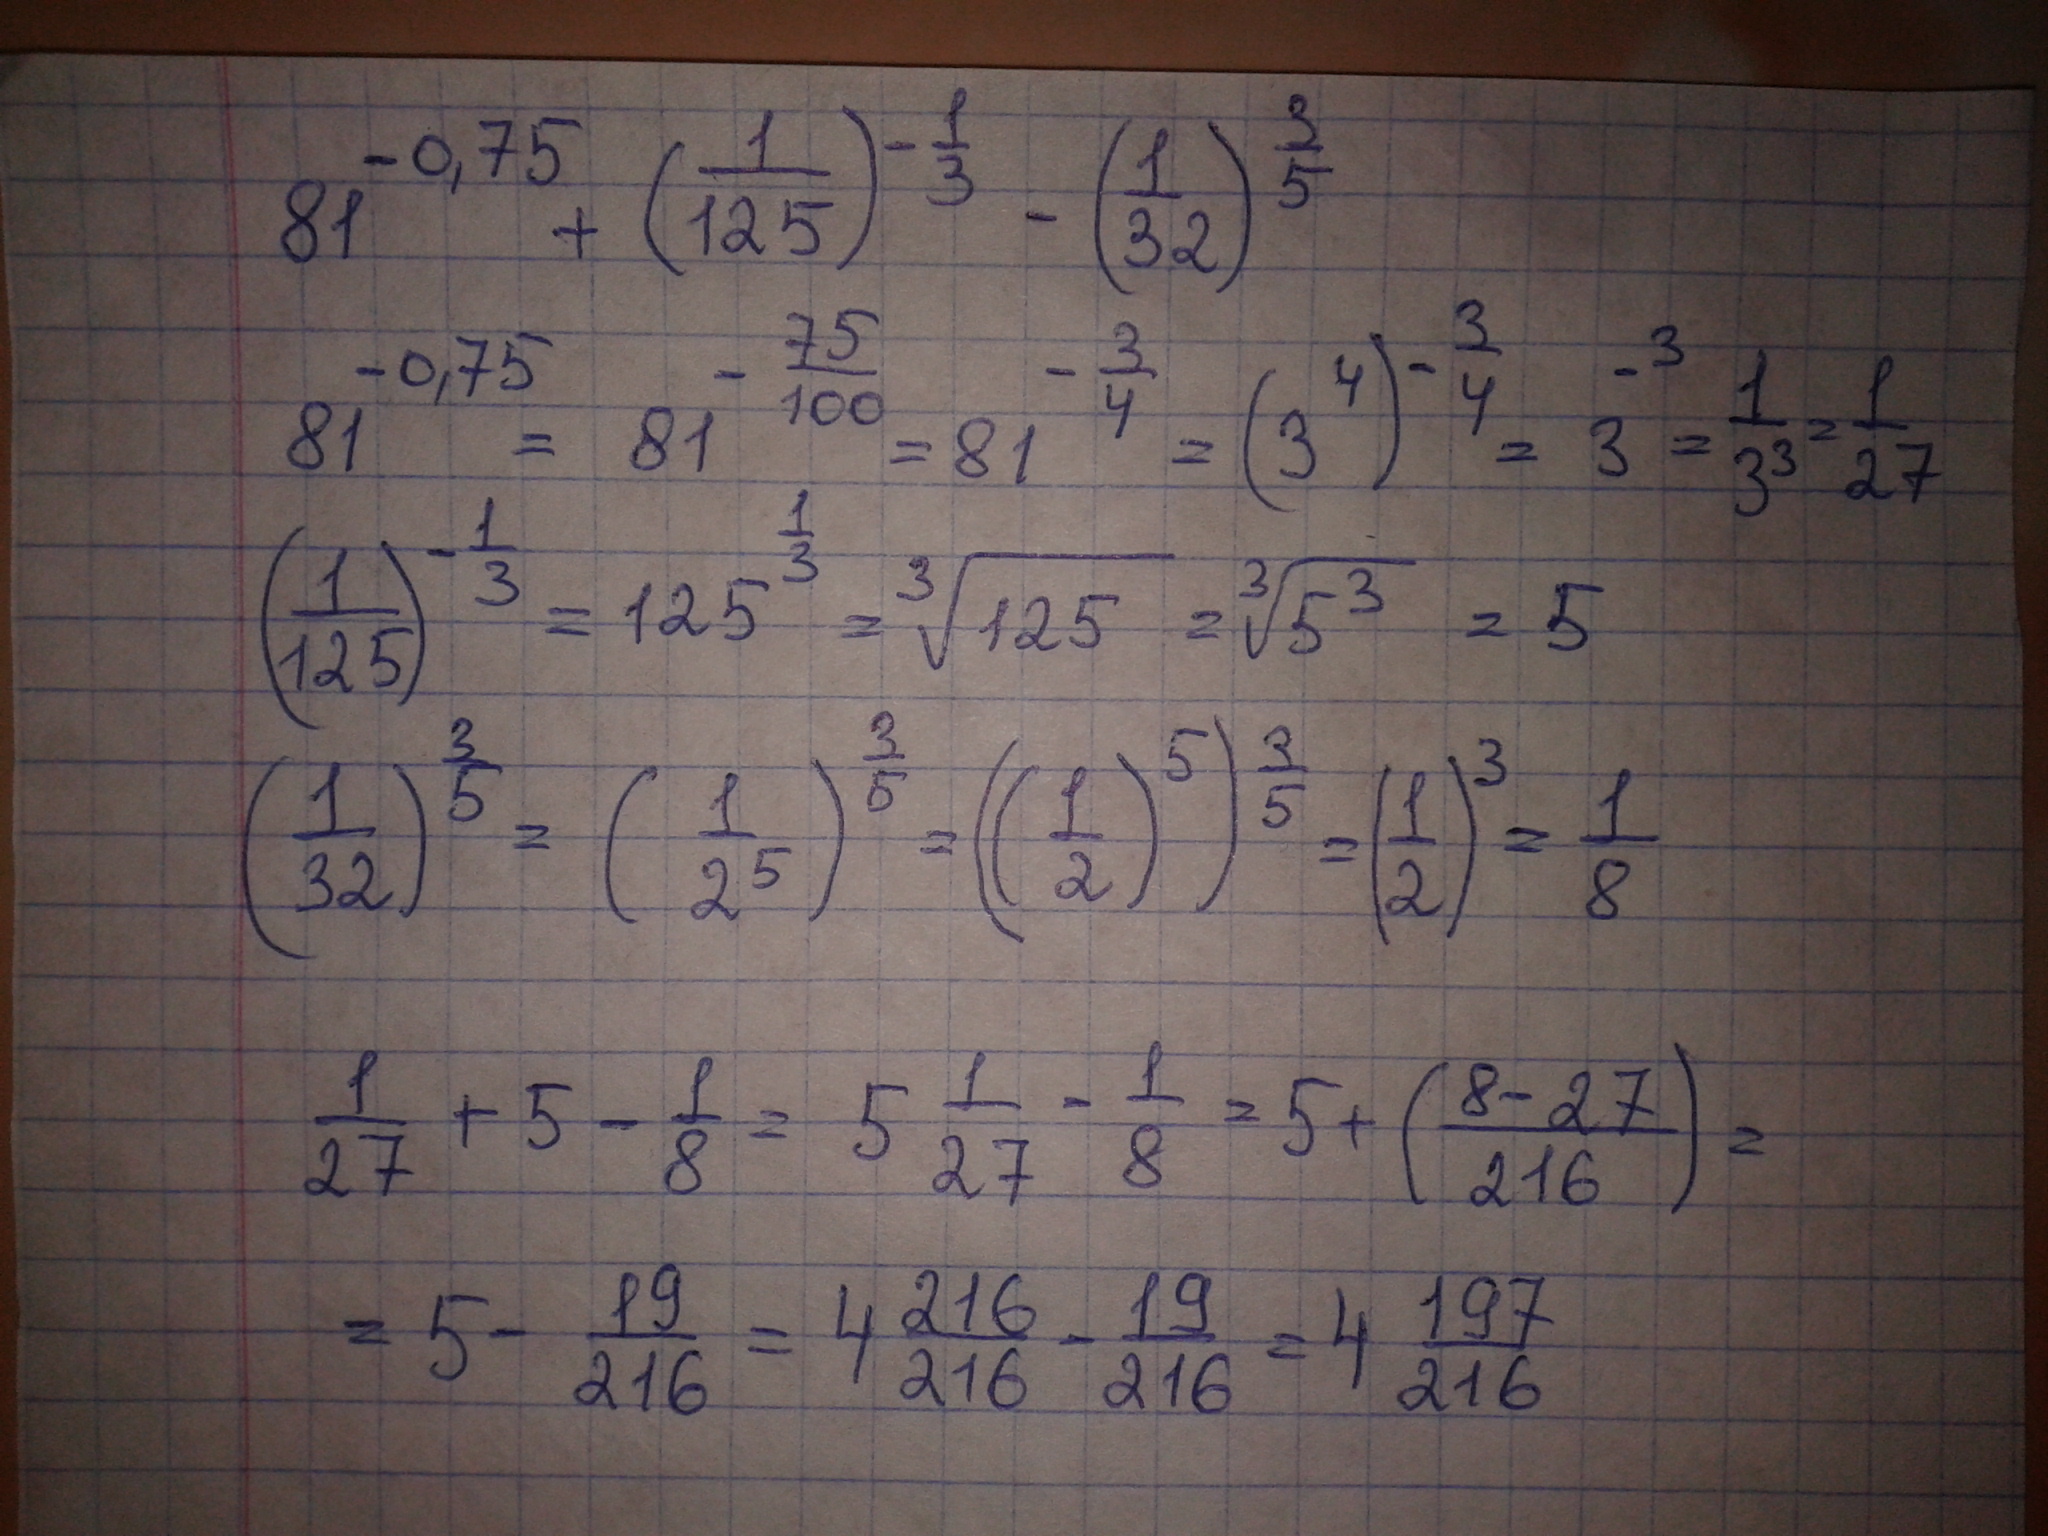 81^{-0,75} + (1/125)^{-1/3} - (1/32)^{3/5}
81^{-0,75} = 81^{-75/100} = 81^{-3/4} = (3^4)^{-3/4} = 3^{-3} = 1/3^3 = 1/27
(1/125)^{-1/3} = 125^{1/3} = ∛125 = ∛5^3 = 5
(1/32)^{3/5} = (1/2^5)^{3/5} = ((1/2)^5)^{3/5} = (1/2)^3 = 1/8
1/27 + 5 - 1/8 = 5 1/27 - 1/8 = 5 + ((8-27)/216) =
= 5 - 19/216 = 4 216/216 - 19/216 = 4 197/216